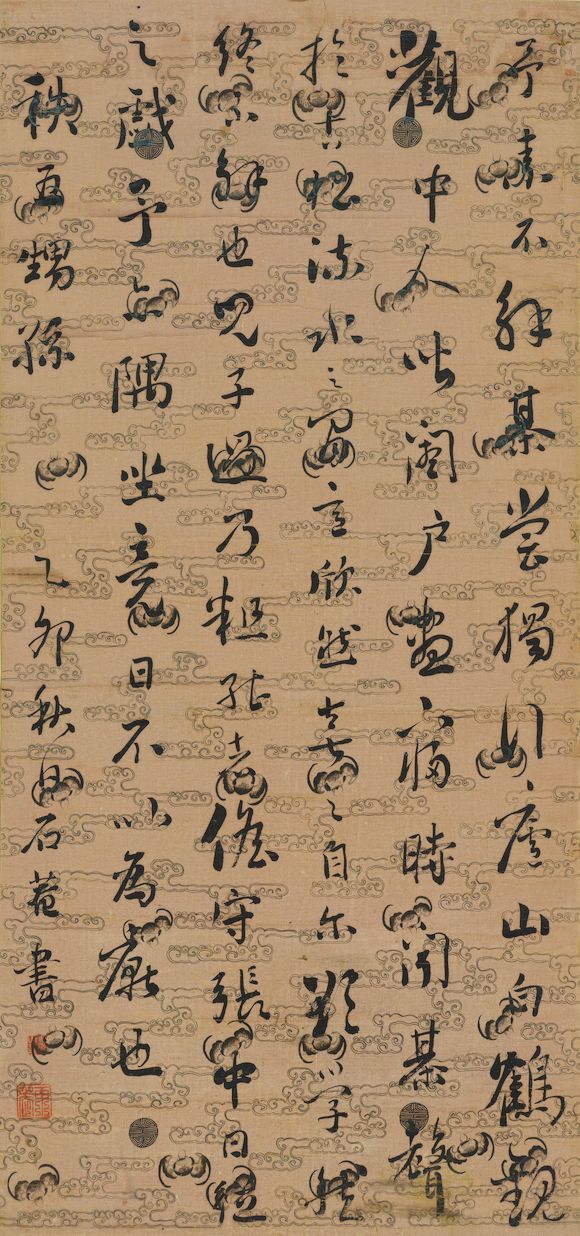 予素不解棊嘗獨遊廬山白鶴觀
觀中人皆闔户晝寢時聞棊聲
於古松流水之間意欣然喜之自尔欲學然
終不解也兒子過乃粗能者儋守張中日從
之戲予亦隅坐竟日不以為厭也
秩五甥孫 乙卯秋日石菴書